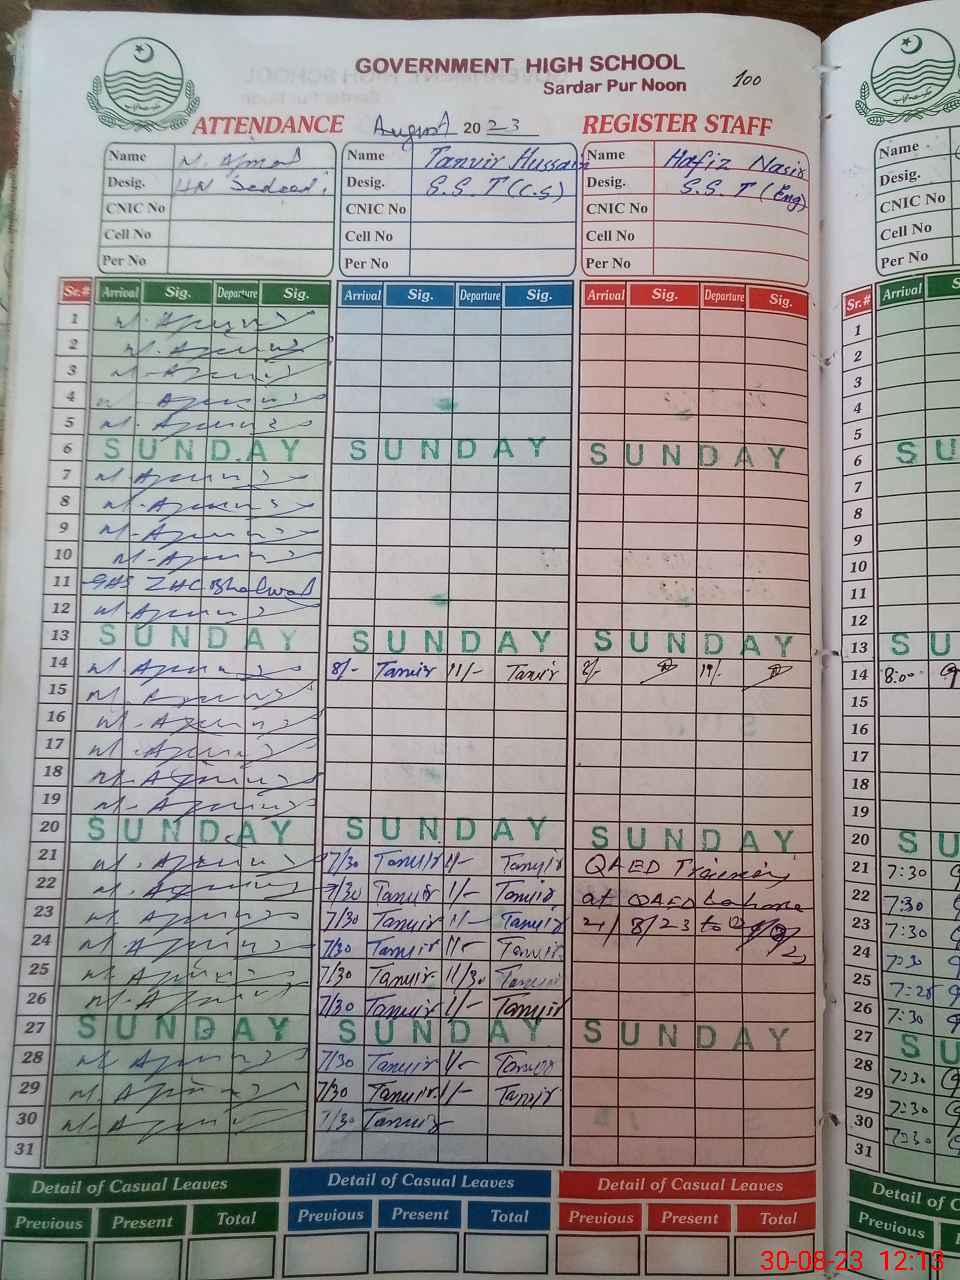 GOVERNMENT HIGH SCHOOL
Sardar Pur Noon
100
ATTENDANCE August 2023 REGISTER STAFF
Name Name Tanvir Hussain Name Hafiz Nasir
Desig. Desig. S.S.T (C.S) Desig. S.S.T (Eng)
CNIC No CNIC No CNIC No
Cell No Cell No Cell No
Per No Per No Per No
Sr.# Arrival Sig. Departure Sig. Arrival Sig. Departure Sig. Arrival Sig. Departure Sig.
1
2
3
4
5
6 SUNDAY SUNDAY SUNDAY
7
8
9
10
11 GHS ZHC Bhalwal
12
13 SUNDAY SUNDAY SUNDAY
14 8/- Tanvir 11/- Tanvir 8/- 11/-
15
16
17
18
19
20 SUNDAY SUNDAY SUNDAY
21 7/30 Tanvir 1/- Tanvir QAED Training
22 7/30 Tanvir 1/- Tanvir at QAED Lahore
23 7/30 Tanvir 1/- Tanvir 21/8/23 to
24 7/30 Tanvir 1/- Tanvir
25 7/30 Tanvir 11/30 Tanvir
26 7/30 Tanvir 1/- Tanvir
27 SUNDAY SUNDAY SUNDAY
28 7/30 Tanvir 1/- Tanvir
29 7/30 Tanvir 1/- Tanvir
30 7/30 Tanvir
31
Detail of Casual Leaves Detail of Casual Leaves Detail of Casual Leaves
Previous Present Total Previous Present Total Previous Present Total
Name
Desig.
CNIC No
Cell No
Per No
Sr.# Arrival
1
2
3
4
5
6 SU
7
8
9
10
11
12
13 SU
14 8:00
15
16
17
18
19
20 SU
21 7:30
22 7:30
23 7:30
24 7:30
25 7:28
26 7:30
27 SU
28 7:30
29 7:30
30 7:30
31
Detail of C
Previous
30-08-23 12:13